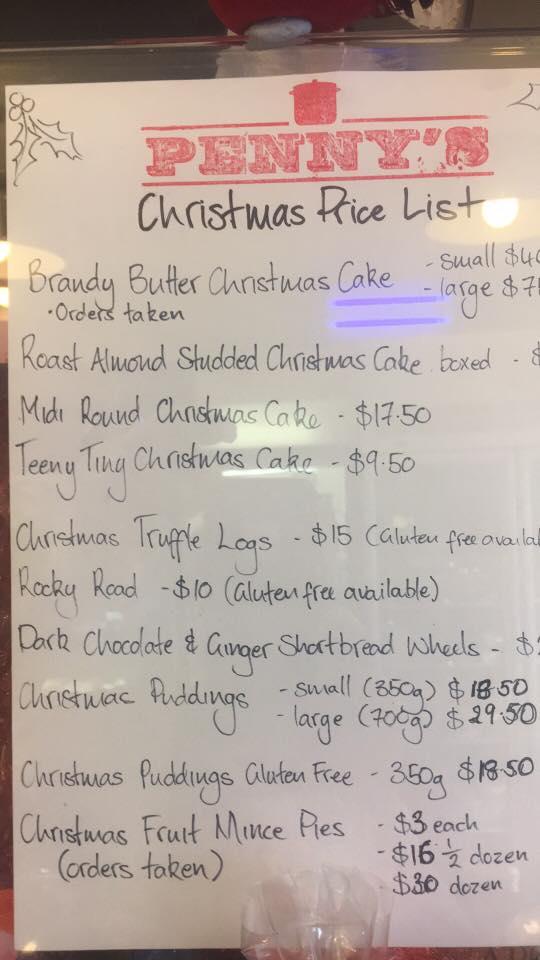 PENNY'S
Christmas Price List
Brandy Butter Christmas Cake - small $40
- large $7
• Orders taken
Roast Almond Studded Christmas Cake boxed - $
Midi Round Christmas Cake - $17.50
Teeny Tiny Christmas Cake - $9.50
Christmas Truffle Logs - $15 (Gluten free availa
Rocky Road - $10 (Gluten free available)
Dark Chocolate & Ginger Shortbread Wheels - $
Christmac Puddings - small (350g) $18.50
- large (700g) $29.50
Christmas Puddings Gluten Free - 350g $18.50
Christmas Fruit Mince Pies - $3 each
(orders taken) - $16 ½ dozen
- $30 dozen